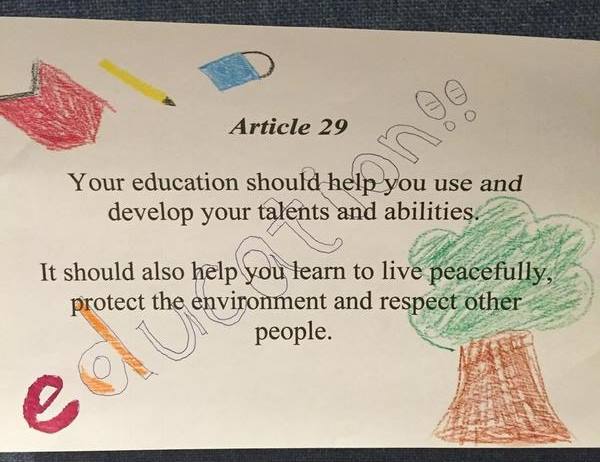 Article 29
Your education should help you use and
develop your talents and abilities.
It should also help you learn to live peacefully,
protect the environment and respect other
people.
education!!